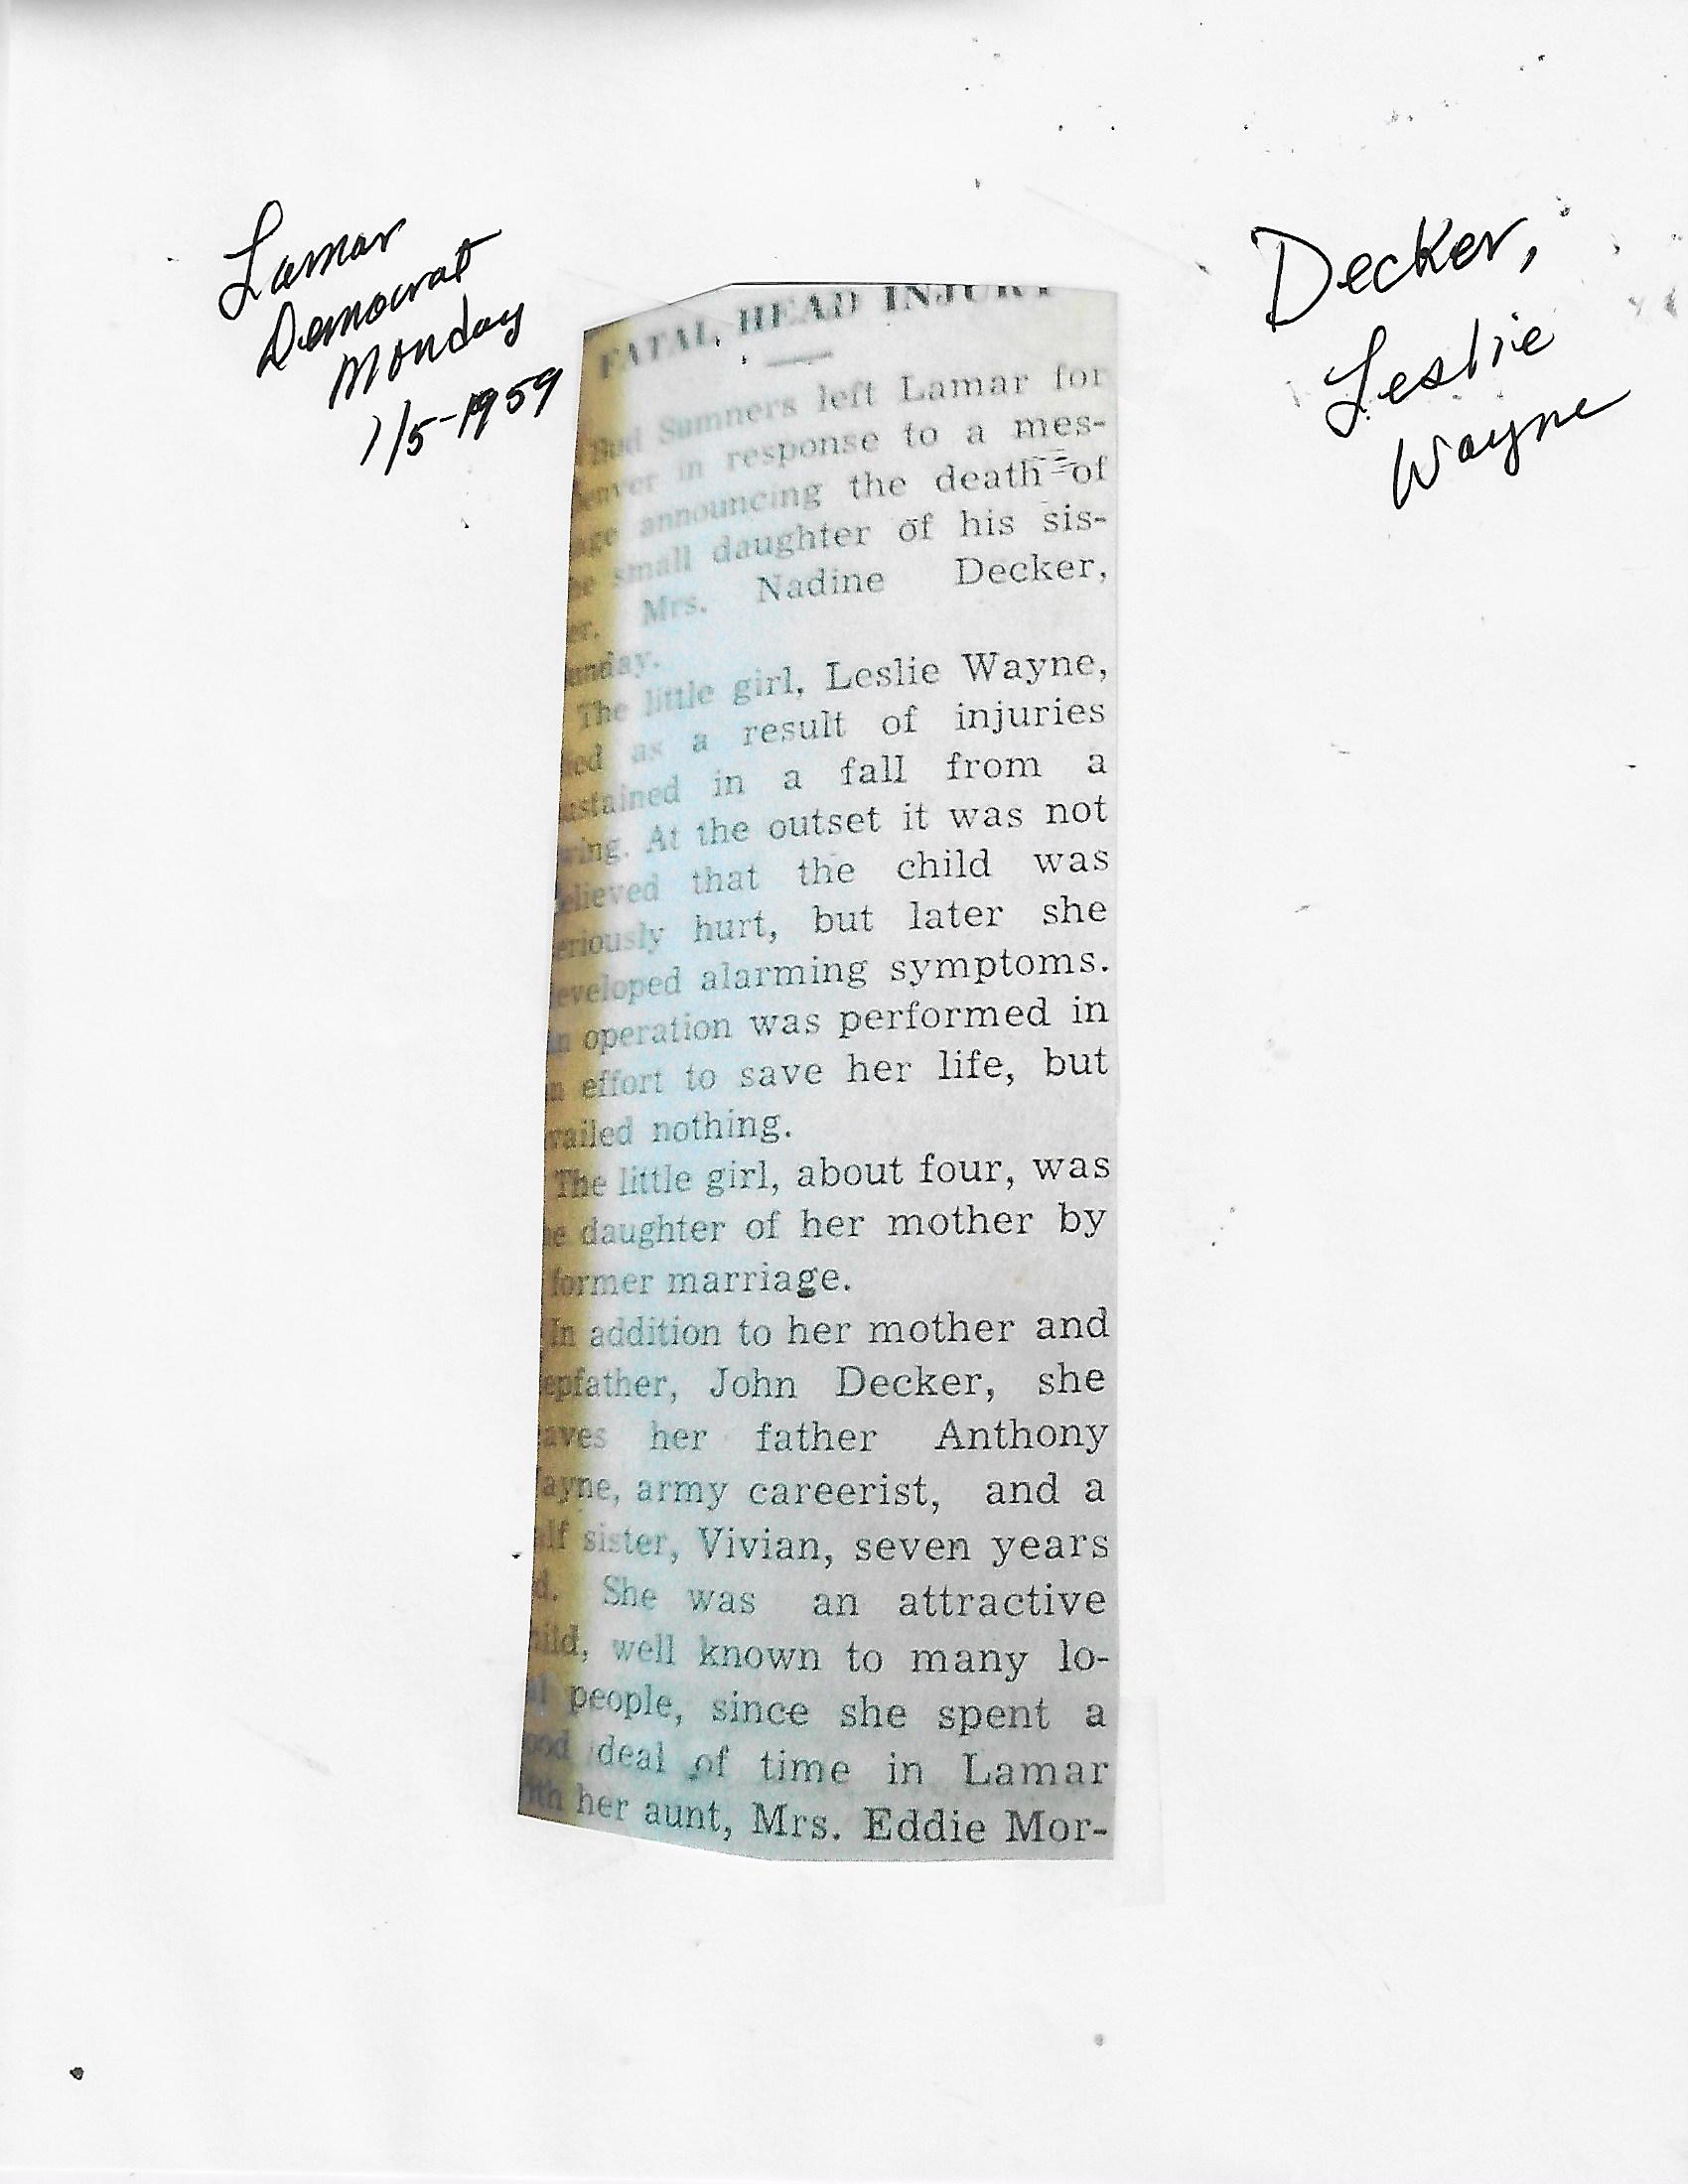 Lamar
Democrat
Monday
1/5-1959
Decker,
Leslie
Wayne
FATAL HEAD INJURY
Bud Sumners left Lamar for
enver in response to a mes-
age announcing the death of
he small daughter of his sis-
er. Mrs. Nadine Decker,
unday.
The little girl, Leslie Wayne,
ied as a result of injuries
ustained in a fall from a
wing. At the outset it was not
elieved that the child was
eriously hurt, but later she
eveloped alarming symptoms.
n operation was performed in
n effort to save her life, but
vailed nothing.
The little girl, about four, was
he daughter of her mother by
former marriage.
In addition to her mother and
epfather, John Decker, she
aves her father Anthony
ayne, army careerist, and a
alf sister, Vivian, seven years
d. She was an attractive
hild, well known to many lo-
al people, since she spent a
ood deal of time in Lamar
ith her aunt, Mrs. Eddie Mor-